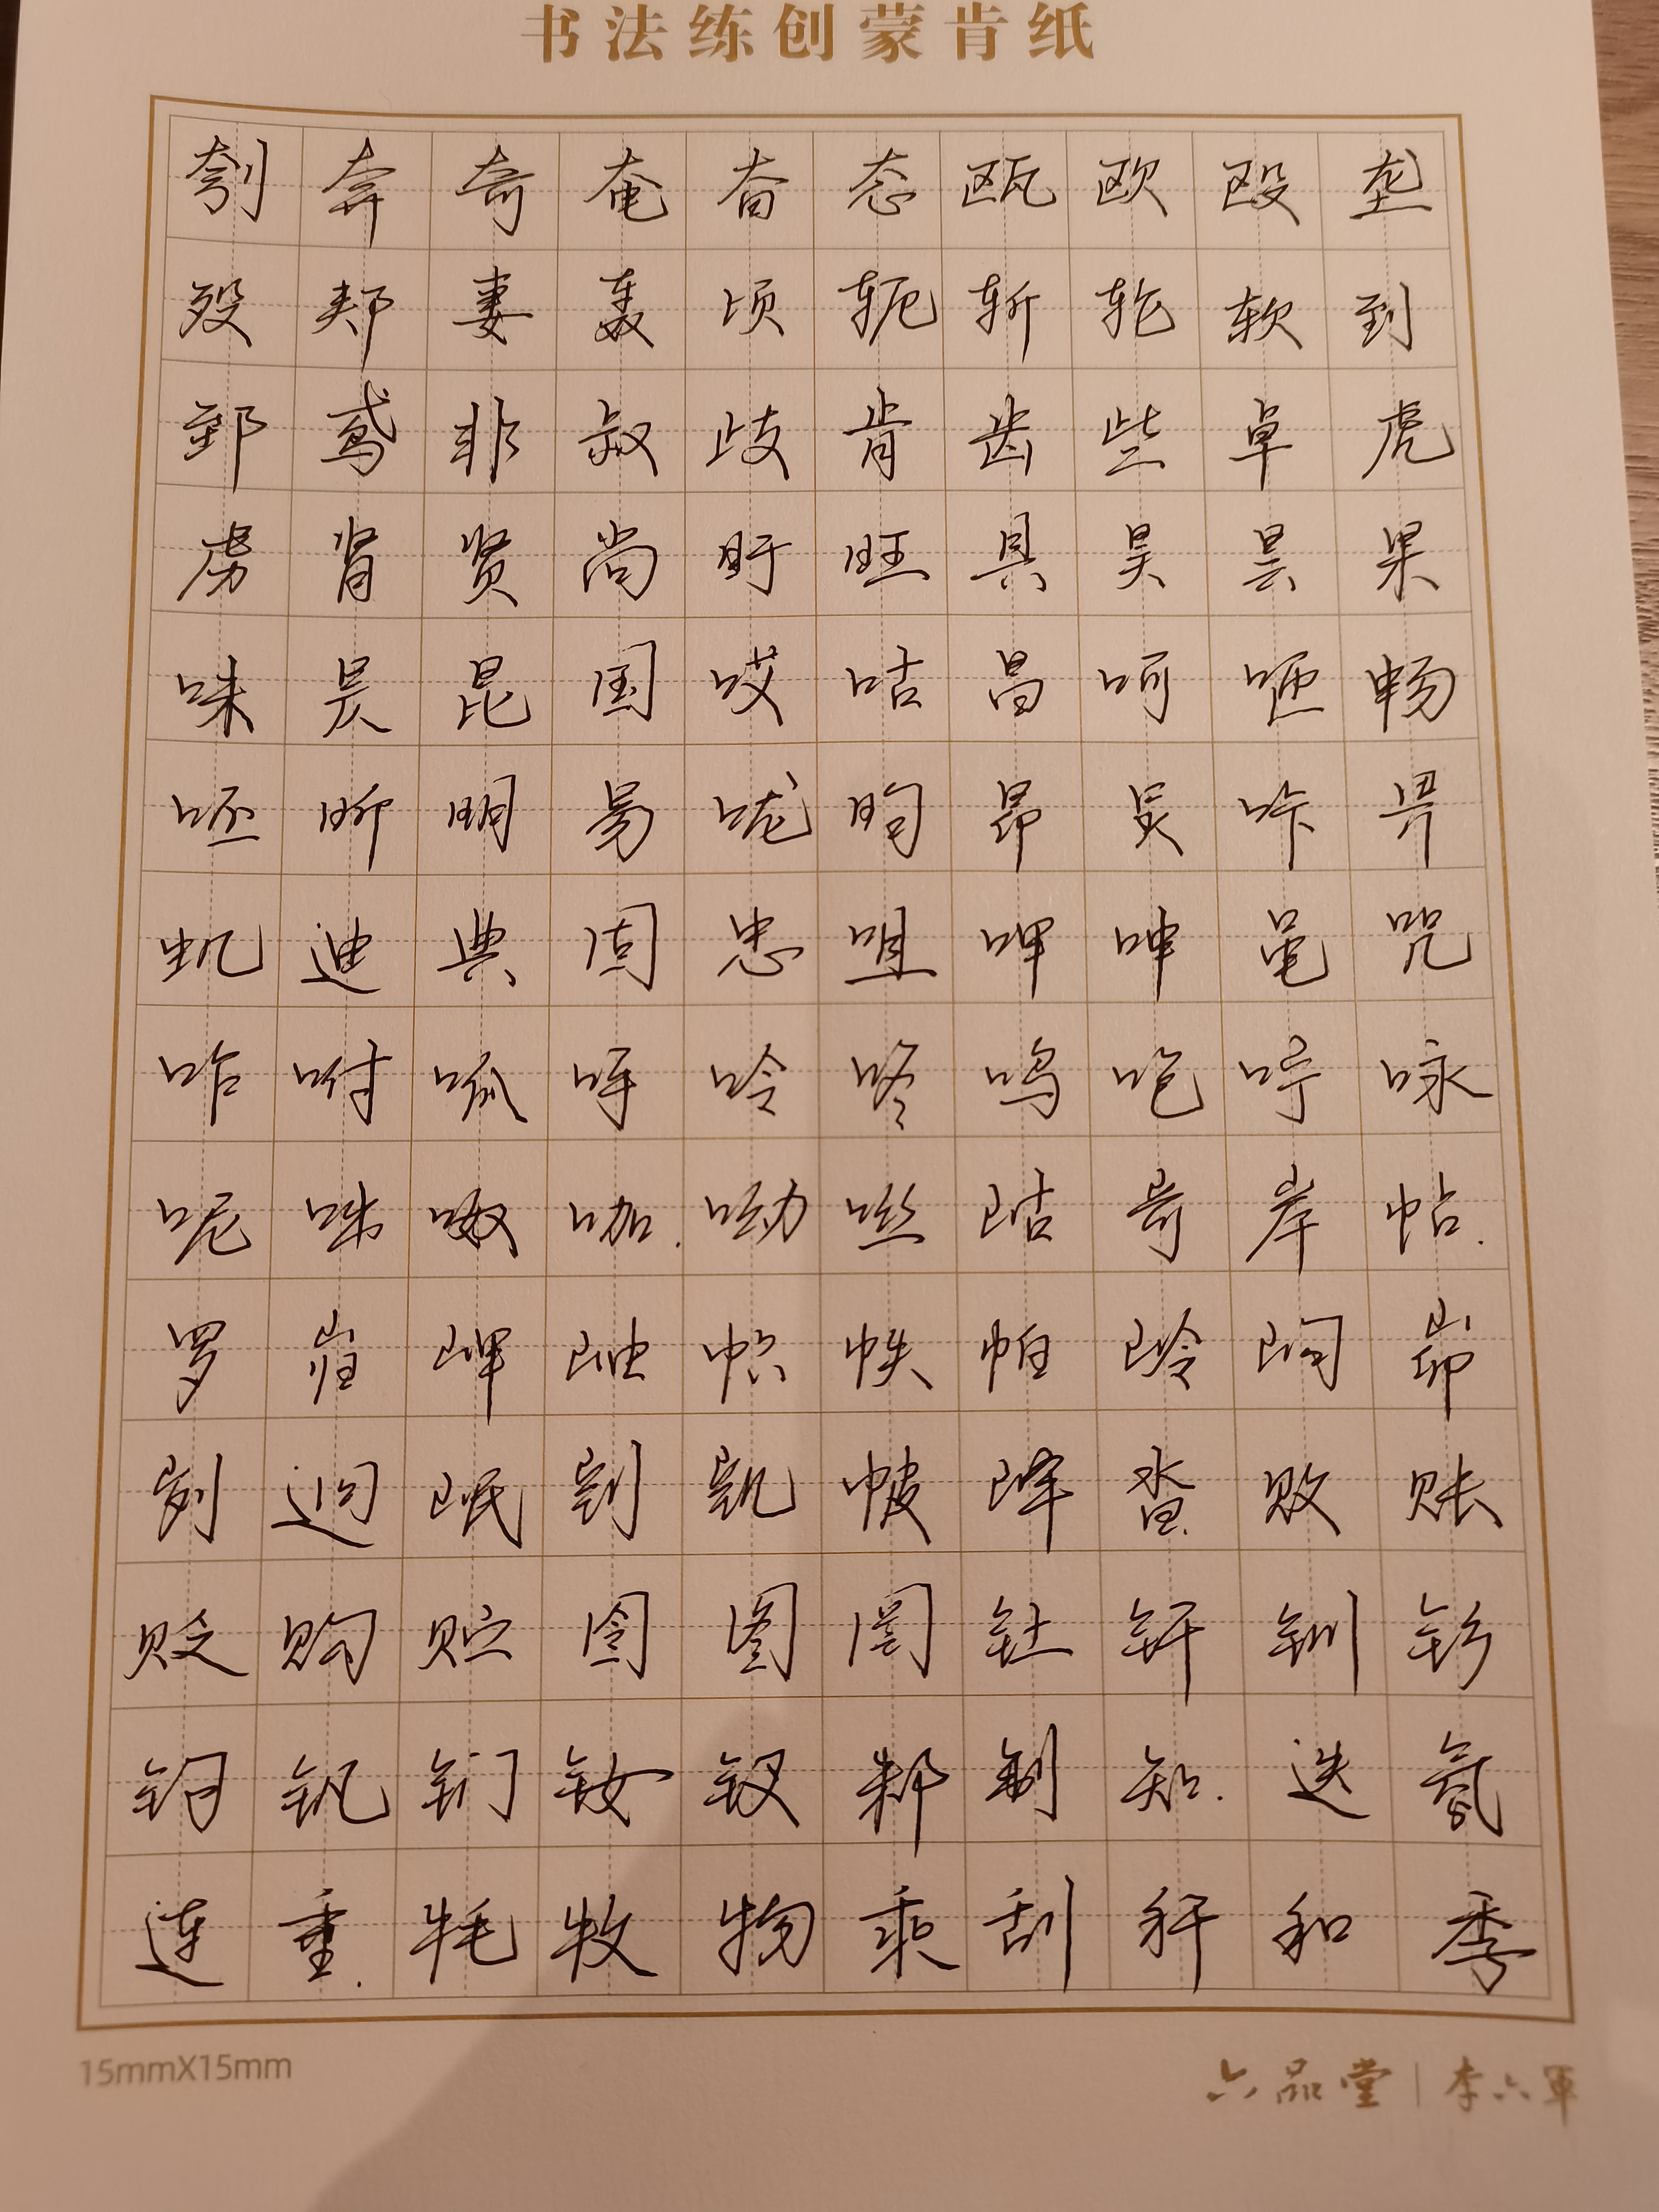 书法练创蒙肯纸
刳奔奇奄奋态瓯欧殴垄
殁郏妻轰顷轭斩轮软到
郅鸢非叔歧肯齿些卓虎
虏肾贤尚盱旺具昊昙果
味炅昆国哎咕昌呵咂畅
呸昕明易咙昀昂旻咔畀
虮迪典固忠咀呷呻黾咒
咋咐呱呼呤咚鸣咆咛咏
呢咄呶咖呦咝岵岢岸帖
罗岿岬岫帜帙帕岭岣峁
刿迥岷剀凯帔峄沓败账
贬购贮囹图罔钍钎钏钐
钔钒钔钕钗邾制知迭氛
连重牦牧物乘刮秆和季
15mmX15mm
六品堂|李六军